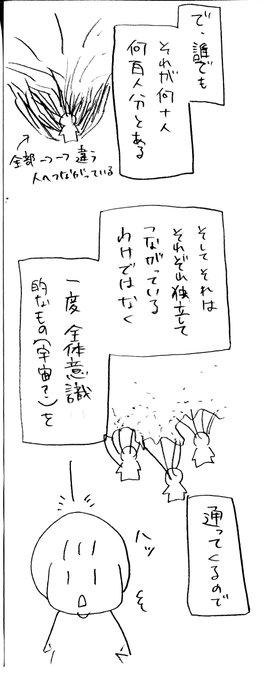 で、誰でも
それが何十人
何百人分とある
全部一つ一つ違う
人へつながっている
そしてそれは
それぞれ独立して
つながっている
わけではなく
一度全体意識
的なもの(宇宙?)を
通ってくるので
ハッ